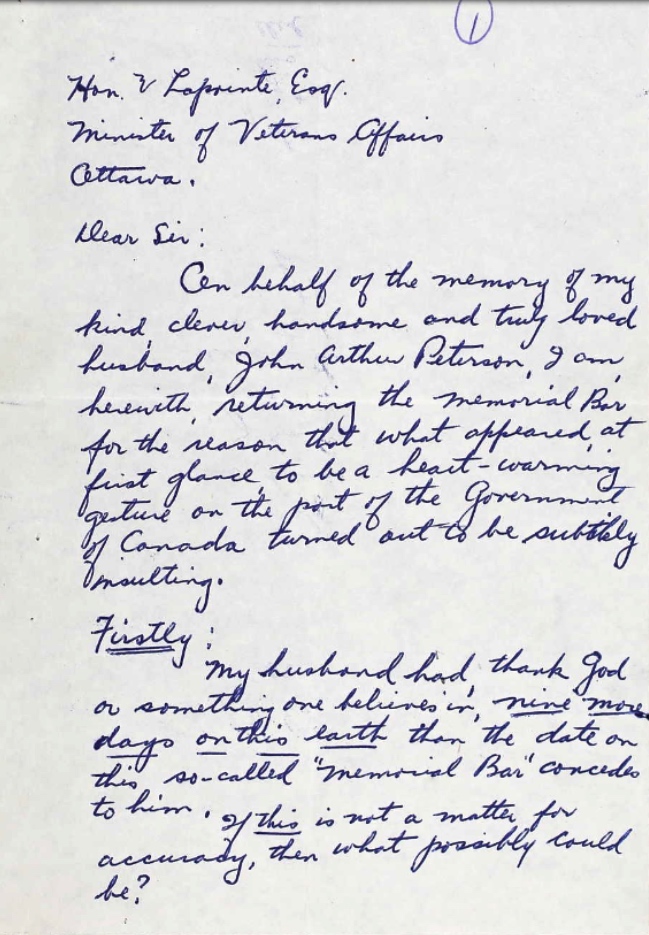 1
Hon. E Lapointe, Esq.
Minister of Veterans Affairs
Ottawa.
Dear Sir:
On behalf of the memory of my
kind, clever, handsome and truly loved
husband, John Arthur Peterson, I am,
herewith, returning the Memorial Bar
for the reason that what appeared, at
first glance, to be a heart-warming
gesture on the part of the Government
of Canada turned out to be subtly
insulting.
Firstly:
My husband had, thank God
or something one believes in, nine more
days on this earth than the date on
this so-called "Memorial Bar" concedes
to him. If this is not a matter for
accuracy, then what possibly could
be?